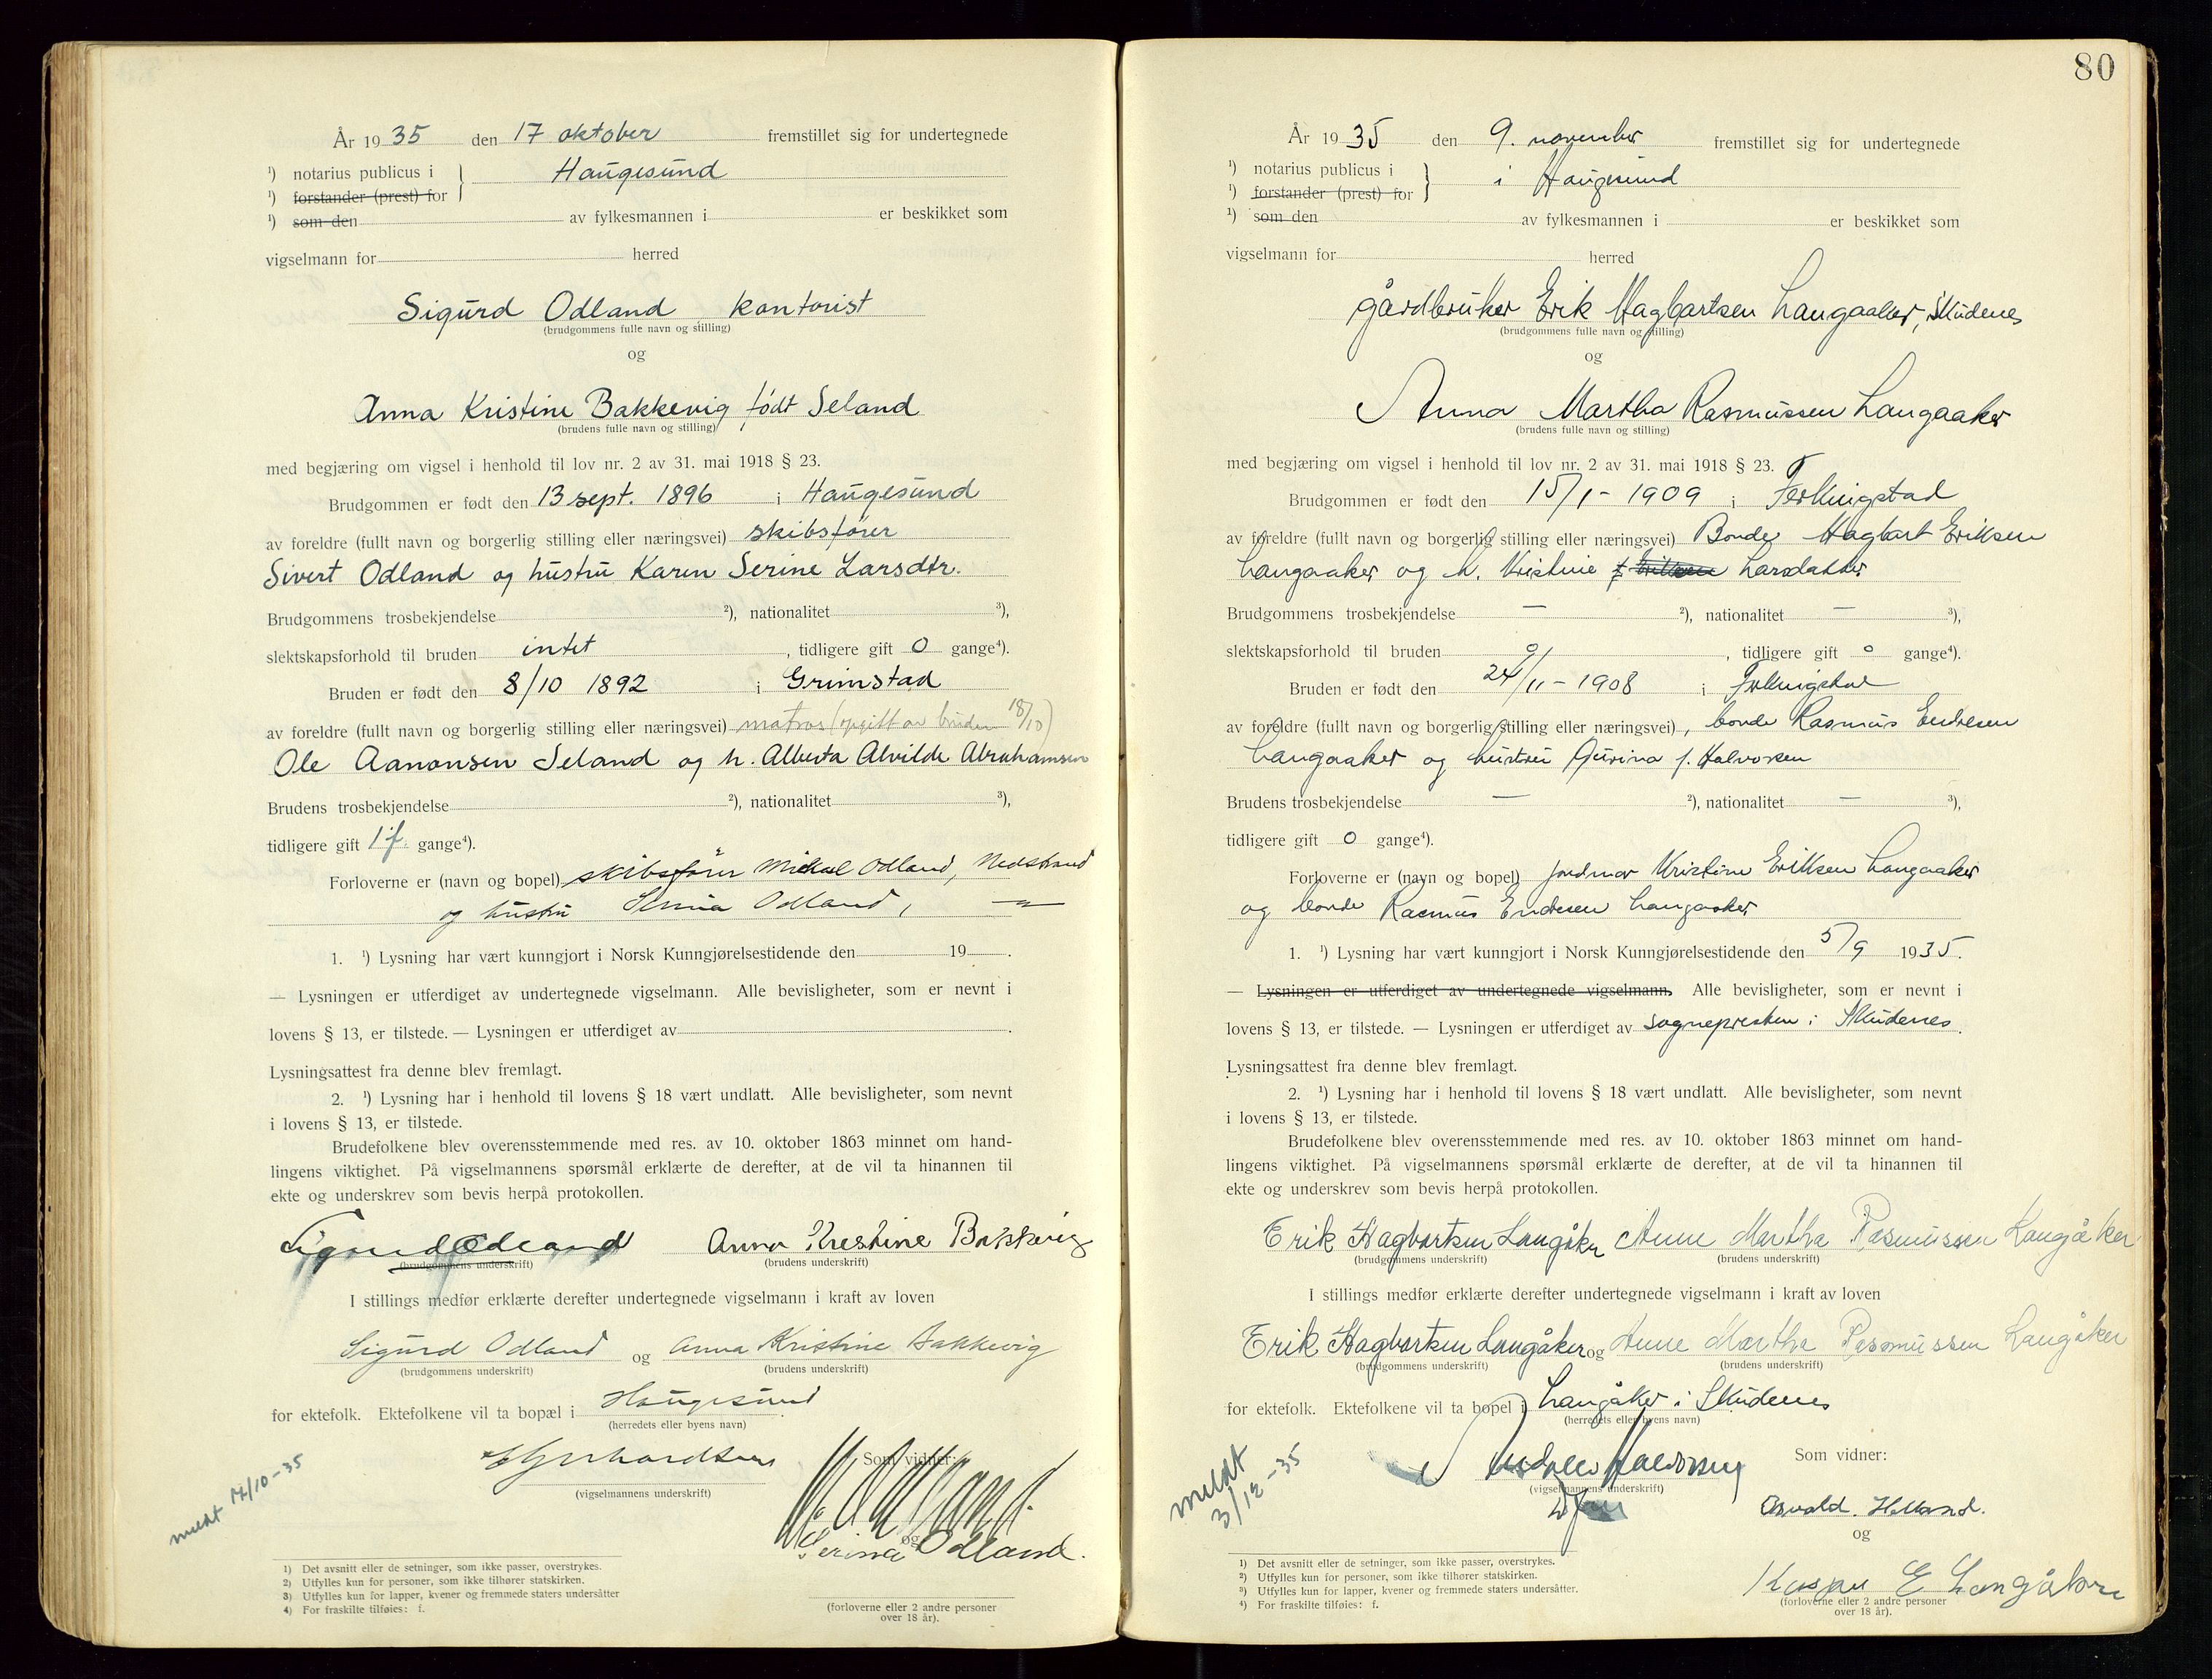 År 1935 den 17 oktober fremstillet sig for undertegnede
¹) notarius publicus i } Haugesund
¹) forstander (prest) for
¹) som den av fylkesmannen i er beskikket som
vigselmann for herred
Sigurd Odland kontorist
(brudgommens fulle navn og stilling)
og
Anna Kristine Bakkevig født Seland
(brudens fulle navn og stilling)
med begjæring om vigsel i henhold til lov nr. 2 av 31. mai 1918 § 23.
Brudgommen er født den 13 sept. 1896 i Haugesund
av foreldre (fullt navn og borgerlig stilling eller næringsvei) skibsfører
Sivert Odland og hustru Karen Serine Larsdtr.
Brudgommens trosbekjendelse ²), nationalitet ³),
slektskapsforhold til bruden intet, tidligere gift 0 gange⁴).
Bruden er født den 8/10 1892 i Grimstad
av foreldre (fullt navn og borgerlig stilling eller næringsvei) matros (opgitt av bruden 18/10)
Ole Aanonsen Seland og h. Alberta Alvilde Abrahamsen
Brudens trosbekjendelse ²), nationalitet ³),
tidligere gift 1 f. gange⁴).
Forloverne er (navn og bopel) skibsfører Mikal Odland, Nedstrand
og hustru Serina Odland, —"—
1. ¹) Lysning har vært kunngjort i Norsk Kunngjørelsestidende den 19 .
— Lysningen er utferdiget av undertegnede vigselmann. Alle bevisligheter, som er nevnt i
lovens § 13, er tilstede. — Lysningen er utferdiget av .
Lysningsattest fra denne blev fremlagt.
2. ¹) Lysning har i henhold til lovens § 18 vært undlatt. Alle bevisligheter, som nevnt
i lovens § 13, er tilstede.
Brudefolkene blev overensstemmende med res. av 10. oktober 1863 minnet om hand-
lingens viktighet. På vigselmannens spørsmål erklærte de derefter, at de vil ta hinannen til
ekte og underskrev som bevis herpå protokollen.
Sigurd Odland Anna Kristine Bakkevig
(brudgommens underskrift) (brudens underskrift)
I stillings medfør erklærte derefter undertegnede vigselmann i kraft av loven
Sigurd Odland og Anna Kristine Bakkevig
(brudgommens underskrift) (brudens underskrift)
for ektefolk. Ektefolkene vil ta bopæl i Haugesund
(herredets eller byens navn)
(vigselmannens underskrift)
Som vidner:
M. Odland
og
Serina Odland.
meldt 17/10-35
¹) Det avsnitt eller de setninger, som ikke passer, overstrykes.
²) Utfylles kun for personer, som ikke tilhører statskirken.
³) Utfylles kun for lapper, kvener og fremmede staters undersåtter
⁴) For fraskilte tilføies: f.
(forloverne eller 2 andre personer
over 18 år).
80
År 1935 den 9. november fremstillet sig for undertegnede
¹) notarius publicus i } i Haugesund
¹) forstander (prest) for
¹) som den av fylkesmannen i er beskikket som
vigselmann for herred
gårdbruker Erik Hagbartsen Langaaker, Skudenes
(brudgommens fulle navn og stilling)
og
Anna Martha Rasmussen Langaaker
(brudens fulle navn og stilling)
med begjæring om vigsel i henhold til lov nr. 2 av 31. mai 1918 § 23.
Brudgommen er født den 15/1 - 1909 i Ferkingstad
av foreldre (fullt navn og borgerlig stilling eller næringsvei) Bonde Hagbart Eriksen
Langaaker og h. Kristine f. Eriksen Larsdatter
Brudgommens trosbekjendelse — ²), nationalitet — ³),
slektskapsforhold til bruden 0, tidligere gift 0 gange⁴).
Bruden er født den 24/11 - 1908 i Ferkingstad
av foreldre (fullt navn og borgerlig stilling eller næringsvei), bonde Rasmus Endresen
Langaaker og hustru Gurina f. Halvorsen
Brudens trosbekjendelse — ²), nationalitet — ³),
tidligere gift 0 gange⁴).
Forloverne er (navn og bopel) jordmor Kristine Eriksen Langaaker
og bonde Rasmus Endresen Langaaker
1. ¹) Lysning har vært kunngjort i Norsk Kunngjørelsestidende den 5/9 1935.
— Lysningen er utferdiget av undertegnede vigselmann. Alle bevisligheter, som er nevnt i
lovens § 13, er tilstede. — Lysningen er utferdiget av sognepresten i Skudenes.
Lysningsattest fra denne blev fremlagt.
2. ¹) Lysning har i henhold til lovens § 18 vært undlatt. Alle bevisligheter, som nevnt
i lovens § 13, er tilstede.
Brudefolkene blev overensstemmende med res. av 10. oktober 1863 minnet om hand-
lingens viktighet. På vigselmannens spørsmål erklærte de derefter, at de vil ta hinannen til
ekte og underskrev som bevis herpå protokollen.
Erik Hagbartsen Langåker Anne Martha Rasmussen Langåker
(brudgommens underskrift) (brudens underskrift)
I stillings medfør erklærte derefter undertegnede vigselmann i kraft av loven
Erik Hagbartsen Langåker og Anne Martha Rasmussen Langåker
(brudgommens underskrift) (brudens underskrift)
for ektefolk. Ektefolkene vil ta bopel i Langåker i Skudenes
(herredets eller byens navn)
(vigselmannens underskrift)
Som vidner:
Osvald
og
E Langåker
meldt 3/12-35
¹) Det avsnitt eller de setninger, som ikke passer, overstrykes.
²) Utfylles kun for personer, som ikke tilhører statskirken.
³) Utfylles kun for lapper, kvener og fremmede staters undersåtter.
⁴) For fraskilte tilføies: f.
(forloverne eller 2 andre personer
over 18 år).